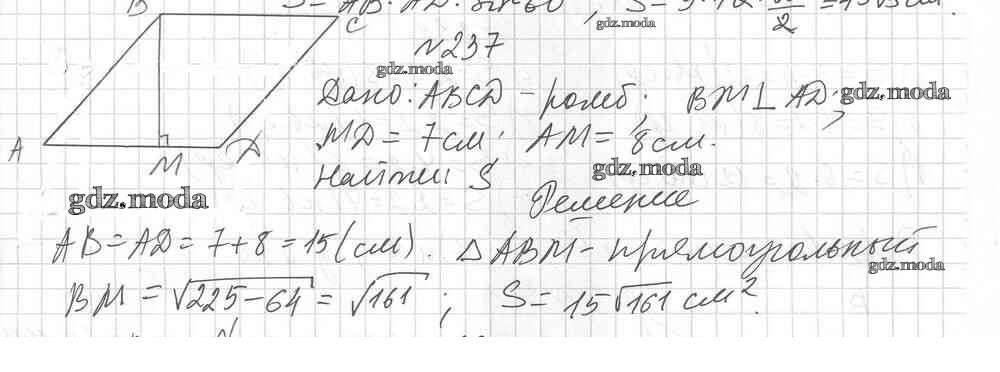 B
C
S = AB · AD · sin 60
gdz.moda
2
N 237
gdz.moda
Дано: ABCD - ромб; BM ⊥ AD;
gdz.moda
MD = 7 см; AM = 8 см.
A
M
D
gdz.moda
Найти: S
gdz.moda
Решение
AB = AD = 7 + 8 = 15 (см). △ ABM - прямоугольный
gdz.moda
BM = √225 - 64 = √161; S = 15√161 см².